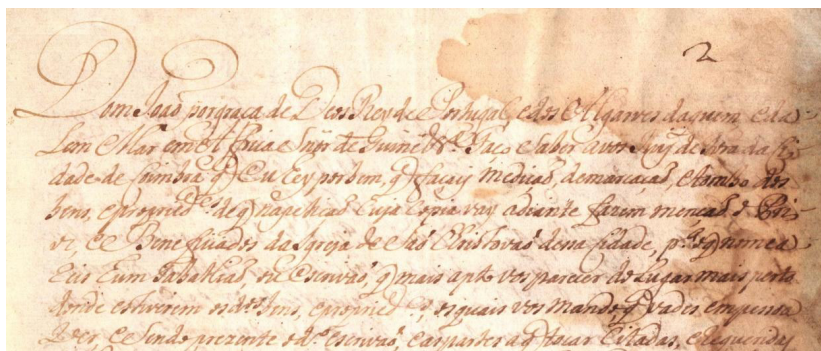 2
Dom Joaõ por graça de Deos Rey de Portugal, e dos Algarves daquem e da
Lem Mar em Africa Snr̃ de Guine &ª. Faço saber a vos Juiz de fora da Ci
dade de Coimbra q̃ Eu Ey por bem, q̃ façais mediçaõ, demarcaçaõ, e tombo dos
bens, e propried.ᵉˢ de q̃ na petiçaõ cuja copia vay adiante fazem mençaõ o Pri
or, e Beneficiados da Igreja de Saõ Christovaõ dessa Cidade, p.ª o q̃ nomea
reis hum Taballiaõ, ou Escrivaõ q̃ mais apto vos parecer do Lugar mais perto
donde estiverem os d.ᵒˢ bens, e propried.ᵉˢ, os quais vos mando q̃ vades em pessoa
ver, e sendo prezente o d.º Escrivaõ, e as partes a q̃ tocar Citadas, e requeridas